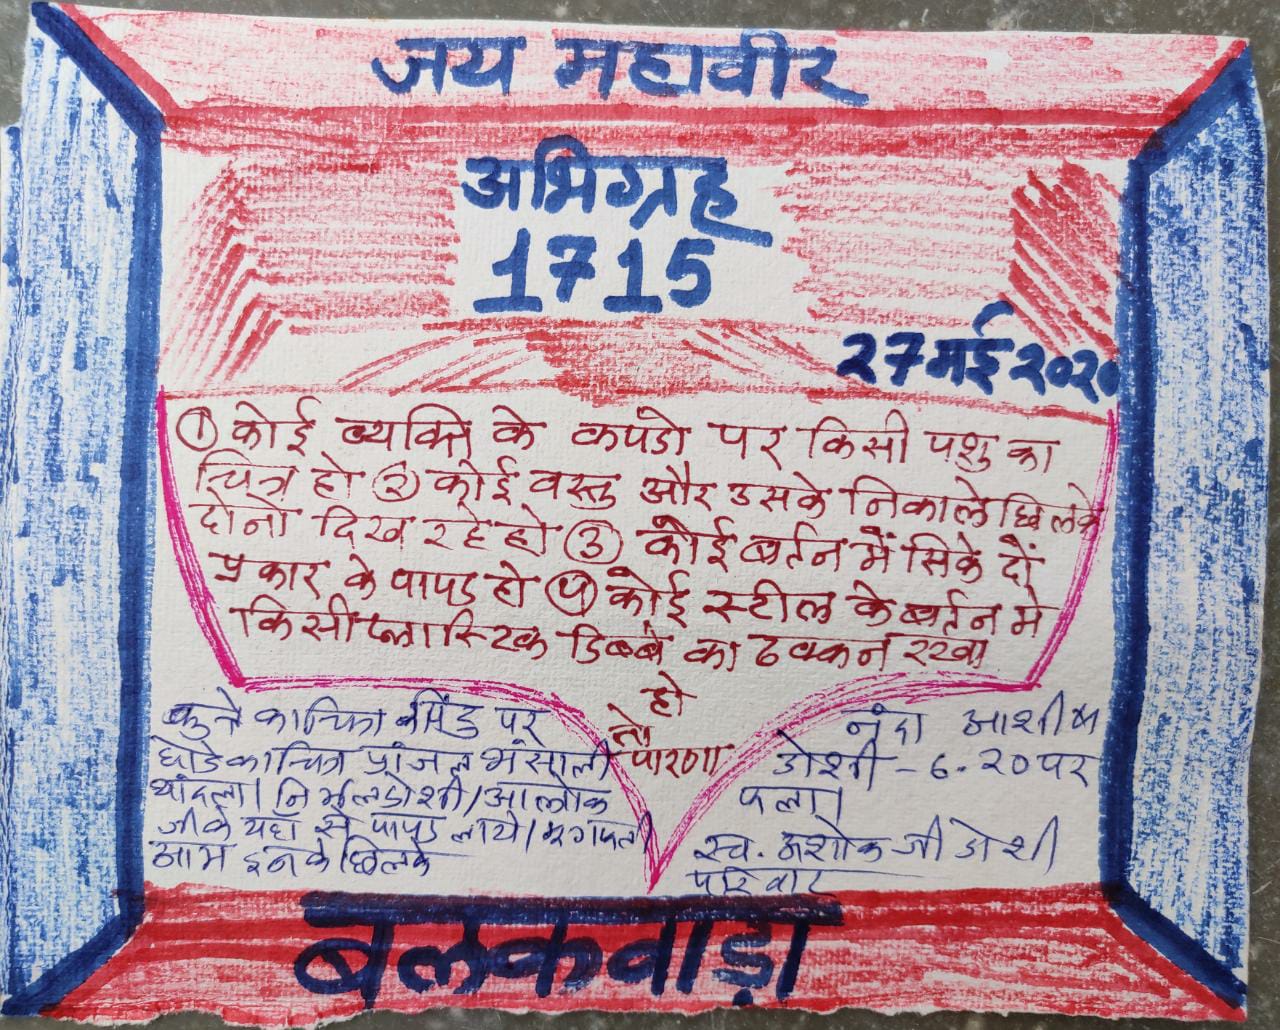 जय महावीर
अभिग्रह
1715
२7 मई २०२०
① कोई व्यक्ति के कपडो पर किसी पशु का
चित्र हो ② कोई वस्तु और उसके निकाले छिलके
दोनो दिख रहे हो ③ कोई बर्तन में सिके दों
प्रकार के पापड हो ④ कोई स्टील के बर्तन मे
किसी प्लास्टिक डिब्बे का ढक्कन रखा
हो
तो
पारणा
कुत्ते का चित्र पर
घोडे का चित्र प्रांजल भंसाली
थांदला। निर्मल डोशी/आलोक
जी के यहाँ से पापड लाये/मूंगफली
आम इनके छिलके
नंदा आशीष
डोशी - 6.20 पर
फला।
स्व. अशोक जी डोशी
परिवार
बलकवाड़ा